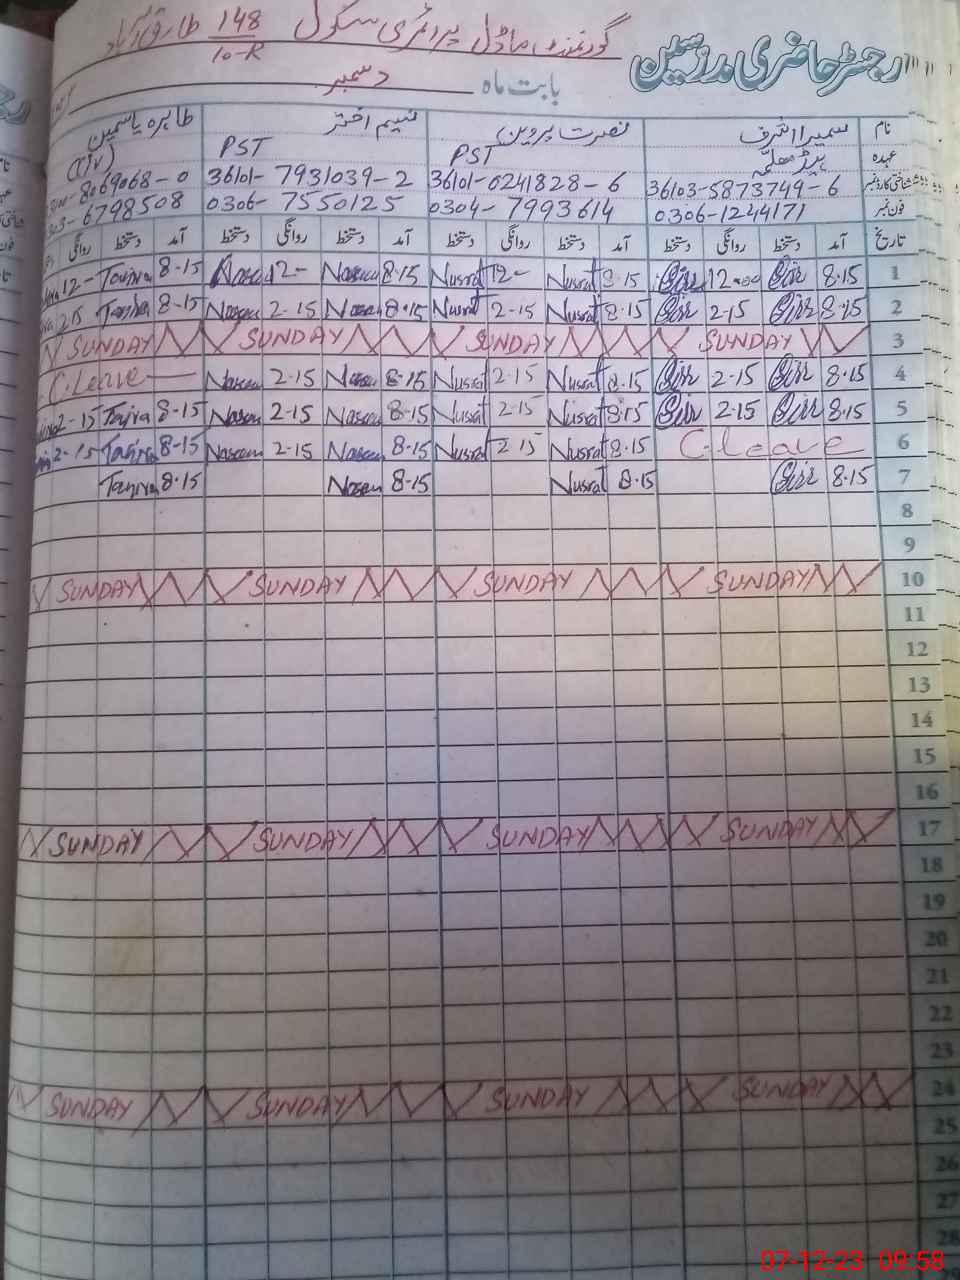 رجسٹر حاضری مدرسین
گورنمنٹ ماڈل پرائمری سکول 148/10-R طارق آباد
بابت ماہ دسمبر
نام سمیرا اشرف نصرت پروین نسیم اختر طاہرہ یاسمین
عہدہ ہیڈ معلمہ PST PST
شناختی کارڈ نمبر 36103-5873749-6 36101-0241828-6 36101-7931039-2 8069068-0
فون نمبر 0306-1244171 0304-7993614 0306-7550125 6798508
تاریخ آمد دستخط روانگی دستخط آمد دستخط روانگی دستخط آمد دستخط روانگی دستخط آمد دستخط روانگی
1 8.15 12.00 8.15 Nusrat 12- Nusrat 8.15 Naseem 12- Naseem 8.15 Tahira 12-
2 8.15 2-15 8.15 Nusrat 2-15 Nusrat 8.15 Naseem 2-15 Naseem 8-15 Tahira 2.15
3 SUNDAY SUNDAY SUNDAY SUNDAY
4 8.15 2-15 8.15 Nusrat 2-15 Nusrat 8-15 Naseem 2.15 Naseem C.Leave
5 8.15 2-15 8.15 Nusrat 2.15 Nusrat 8-15 Naseem 2-15 Naseem 8-15 Tahira 2-15
6 C.leave 8.15 Nusrat 2.15 Nusrat 8-15 Naseem 2.15 Naseem 8-15 Tahira 2-15
7 8.15 8.15 Nusrat 8-15 Naseem 8-15 Tahira
8
9
10 SUNDAY SUNDAY SUNDAY SUNDAY
11
12
13
14
15
16
17 SUNDAY SUNDAY SUNDAY SUNDAY
18
19
20
21
22
23
24 SUNDAY SUNDAY SUNDAY SUNDAY
25
26
27
28
07-12-23 09:58